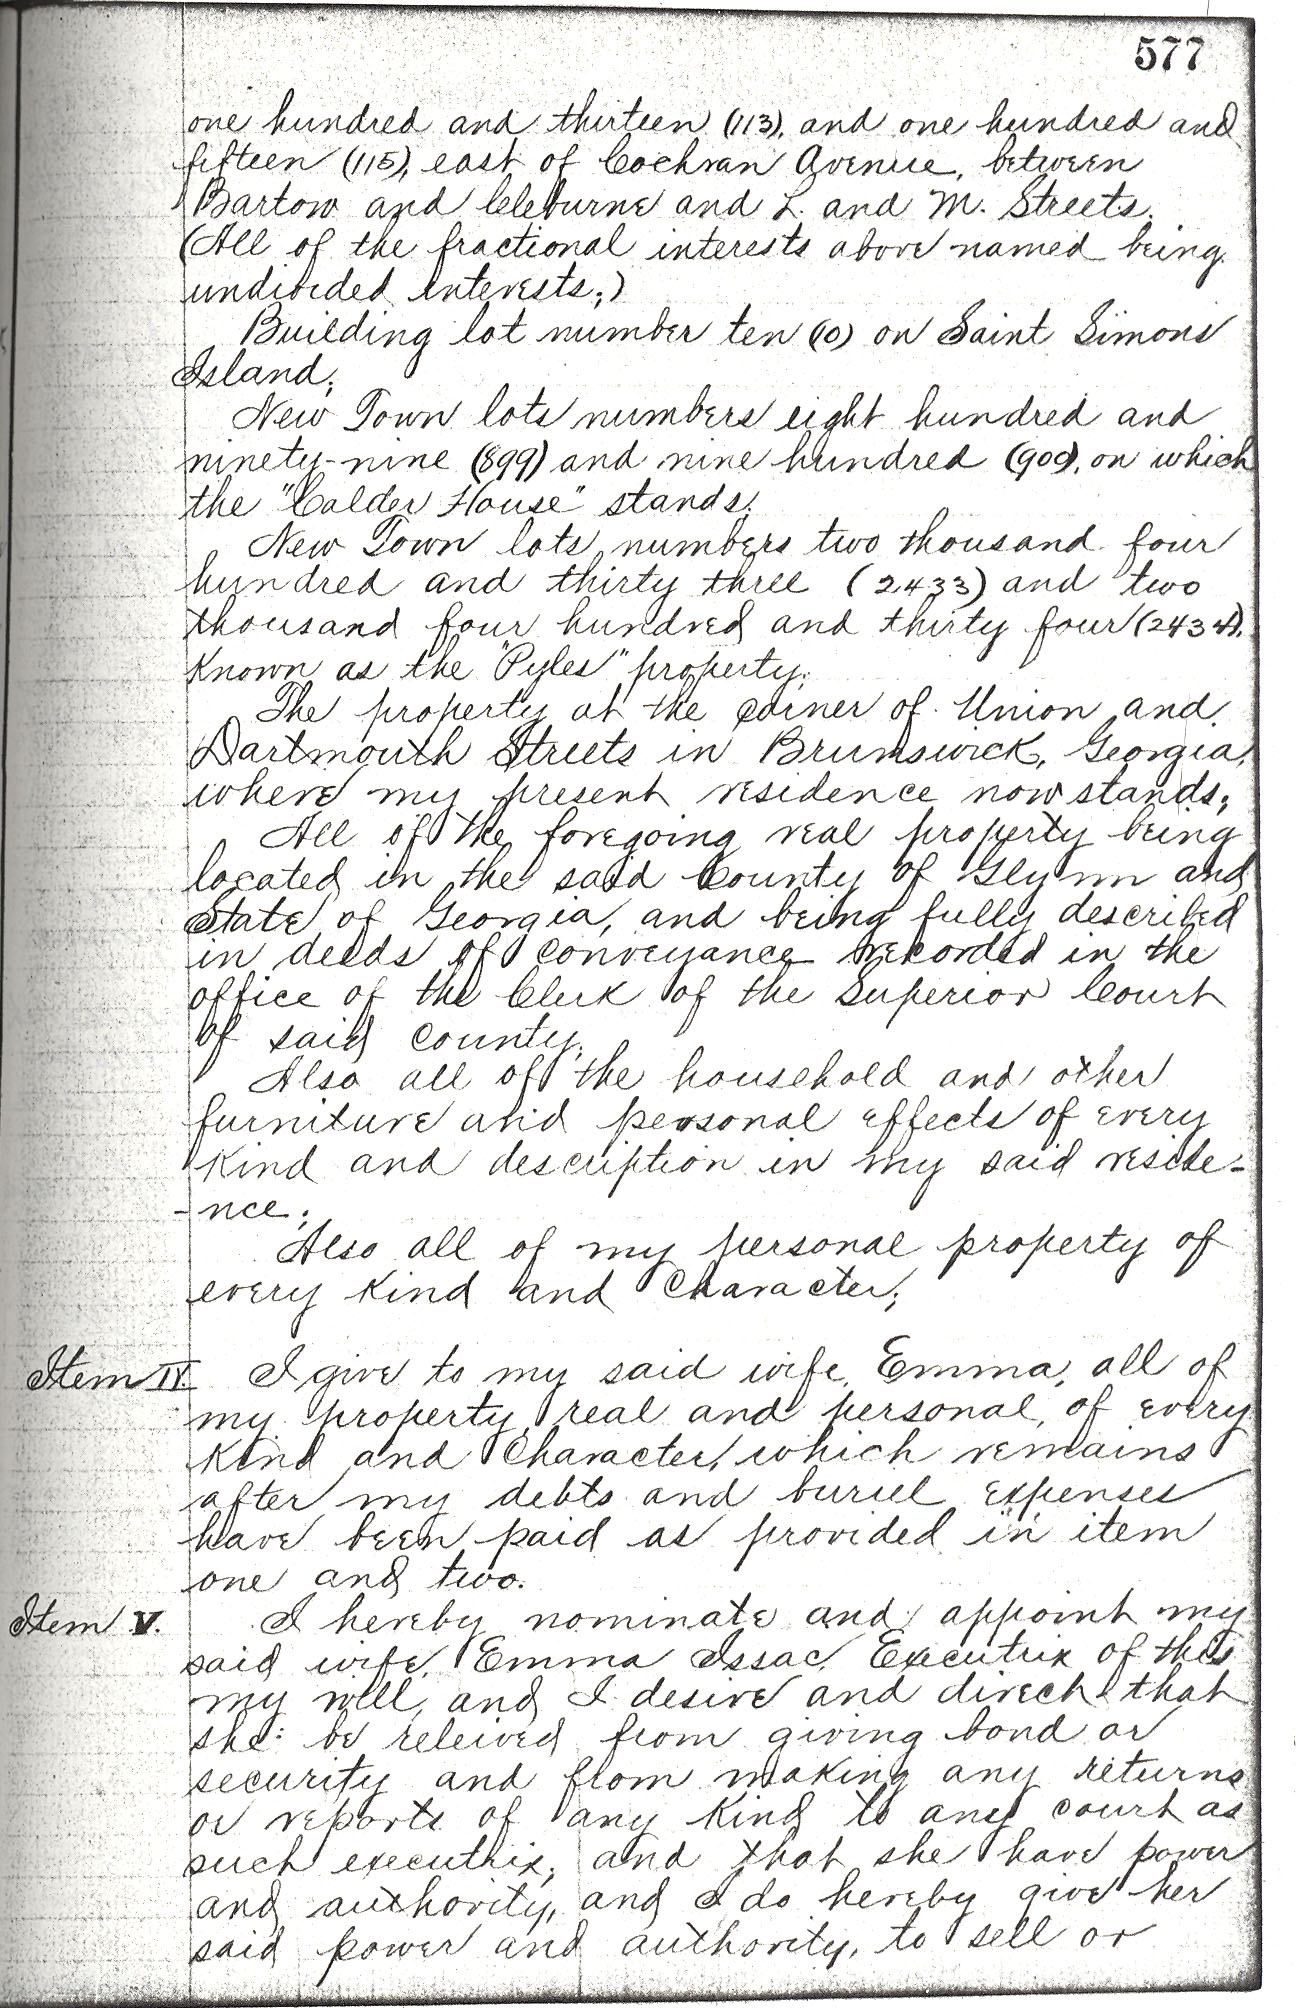 577
one hundred and thirteen (113), and one hundred and
fifteen (115), east of Cochran Avenue, between
Bartow and Cleburne and L. and M. Streets.
(All of the fractional interests above named being
undivided interests;)
Building lot number ten (10) on Saint Simons
Island;
New Town lots numbers eight hundred and
ninety-nine (899) and nine hundred (900), on which
the "Calder House" stands;
New Town lots numbers two thousand four
hundred and thirty three (2433) and two
thousand four hundred and thirty four (2434),
known as the "Pyles" property;
The property at the corner of Union and
Dartmouth Streets in Brunswick, Georgia,
where my present residence now stands;
All of the foregoing real property being
located in the said County of Glynn and
State of Georgia, and being fully described
in deeds of conveyance recorded in the
office of the Clerk of the Superior Court
of said county;
Also all of the household and other
furniture and personal effects of every
kind and description in my said reside-
-nce;
Also all of my personal property of
every kind and character;
Item IV. I give to my said wife, Emma, all of
my property, real and personal, of every
kind and character, which remains
after my debts and buriel expenses
have been paid as provided in item
one and two.
Item V. I hereby nominate and appoint my
said wife, Emma Issac, Executrix of this
my will, and I desire and direct that
she be releived from giving bond or
security and from making any returns
or reports of any kind to any court as
such executrix, and that she have power
and authority, and I do hereby give her
said power and authority, to sell or